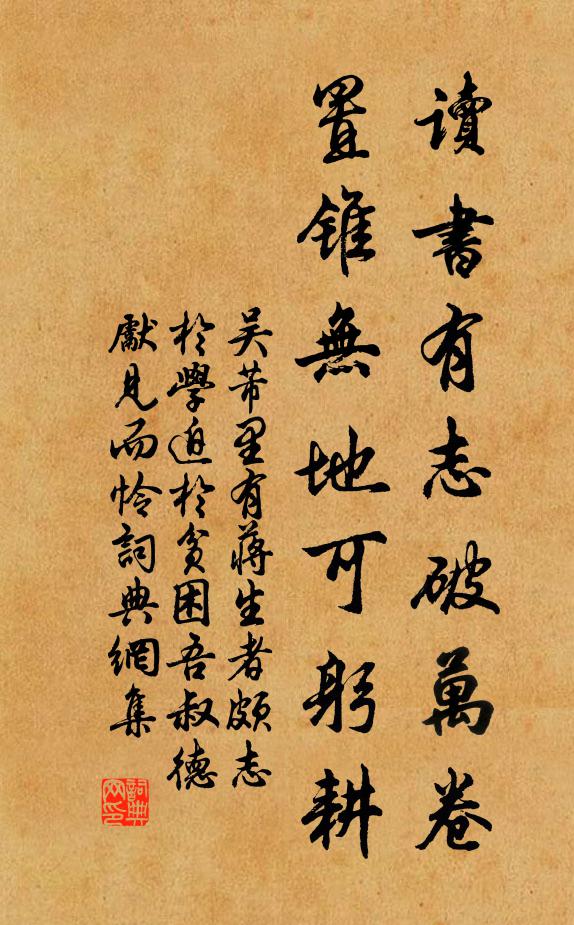 讀書有志破萬卷
置錐無地可躬耕
吳芾里有蔣生者頗志
於學迫於貧困吾叔德
獻見而怜詞典網集
詞典網印